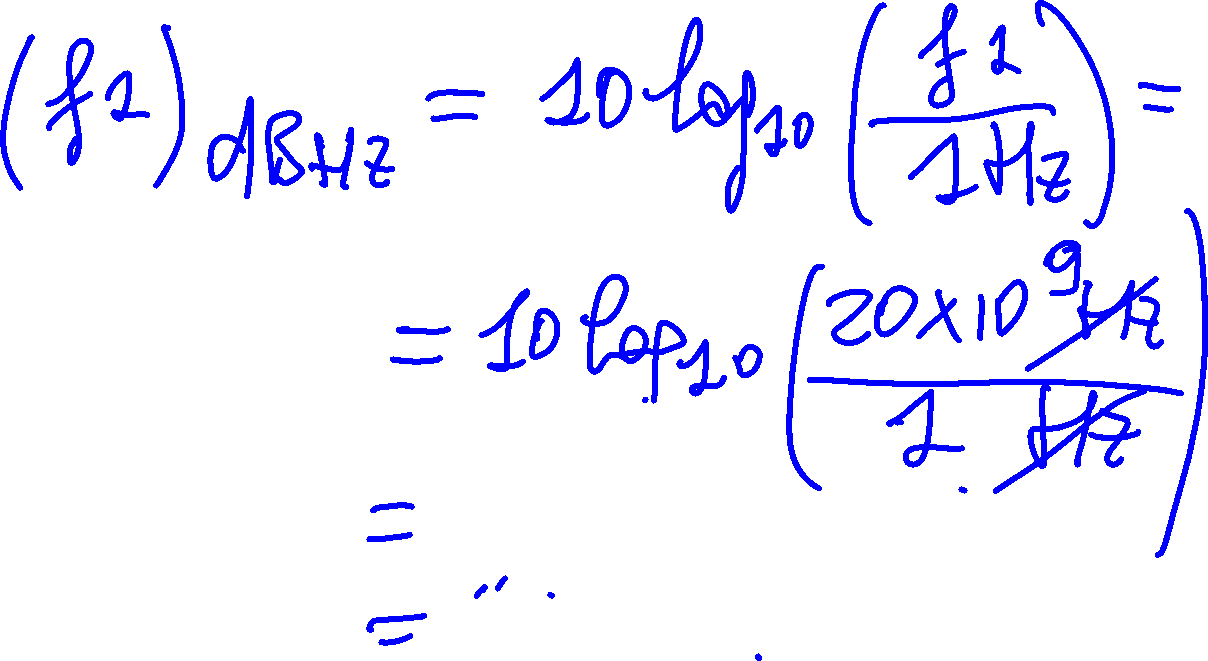 (f1)dBHz = 10 log10 (f1 / 1Hz) =
= 10 log10 (20×10^9 Hz / 1 Hz)
=
= ...